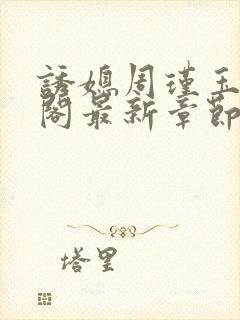 誘媳周瑾玉
閣最新章節
塔里